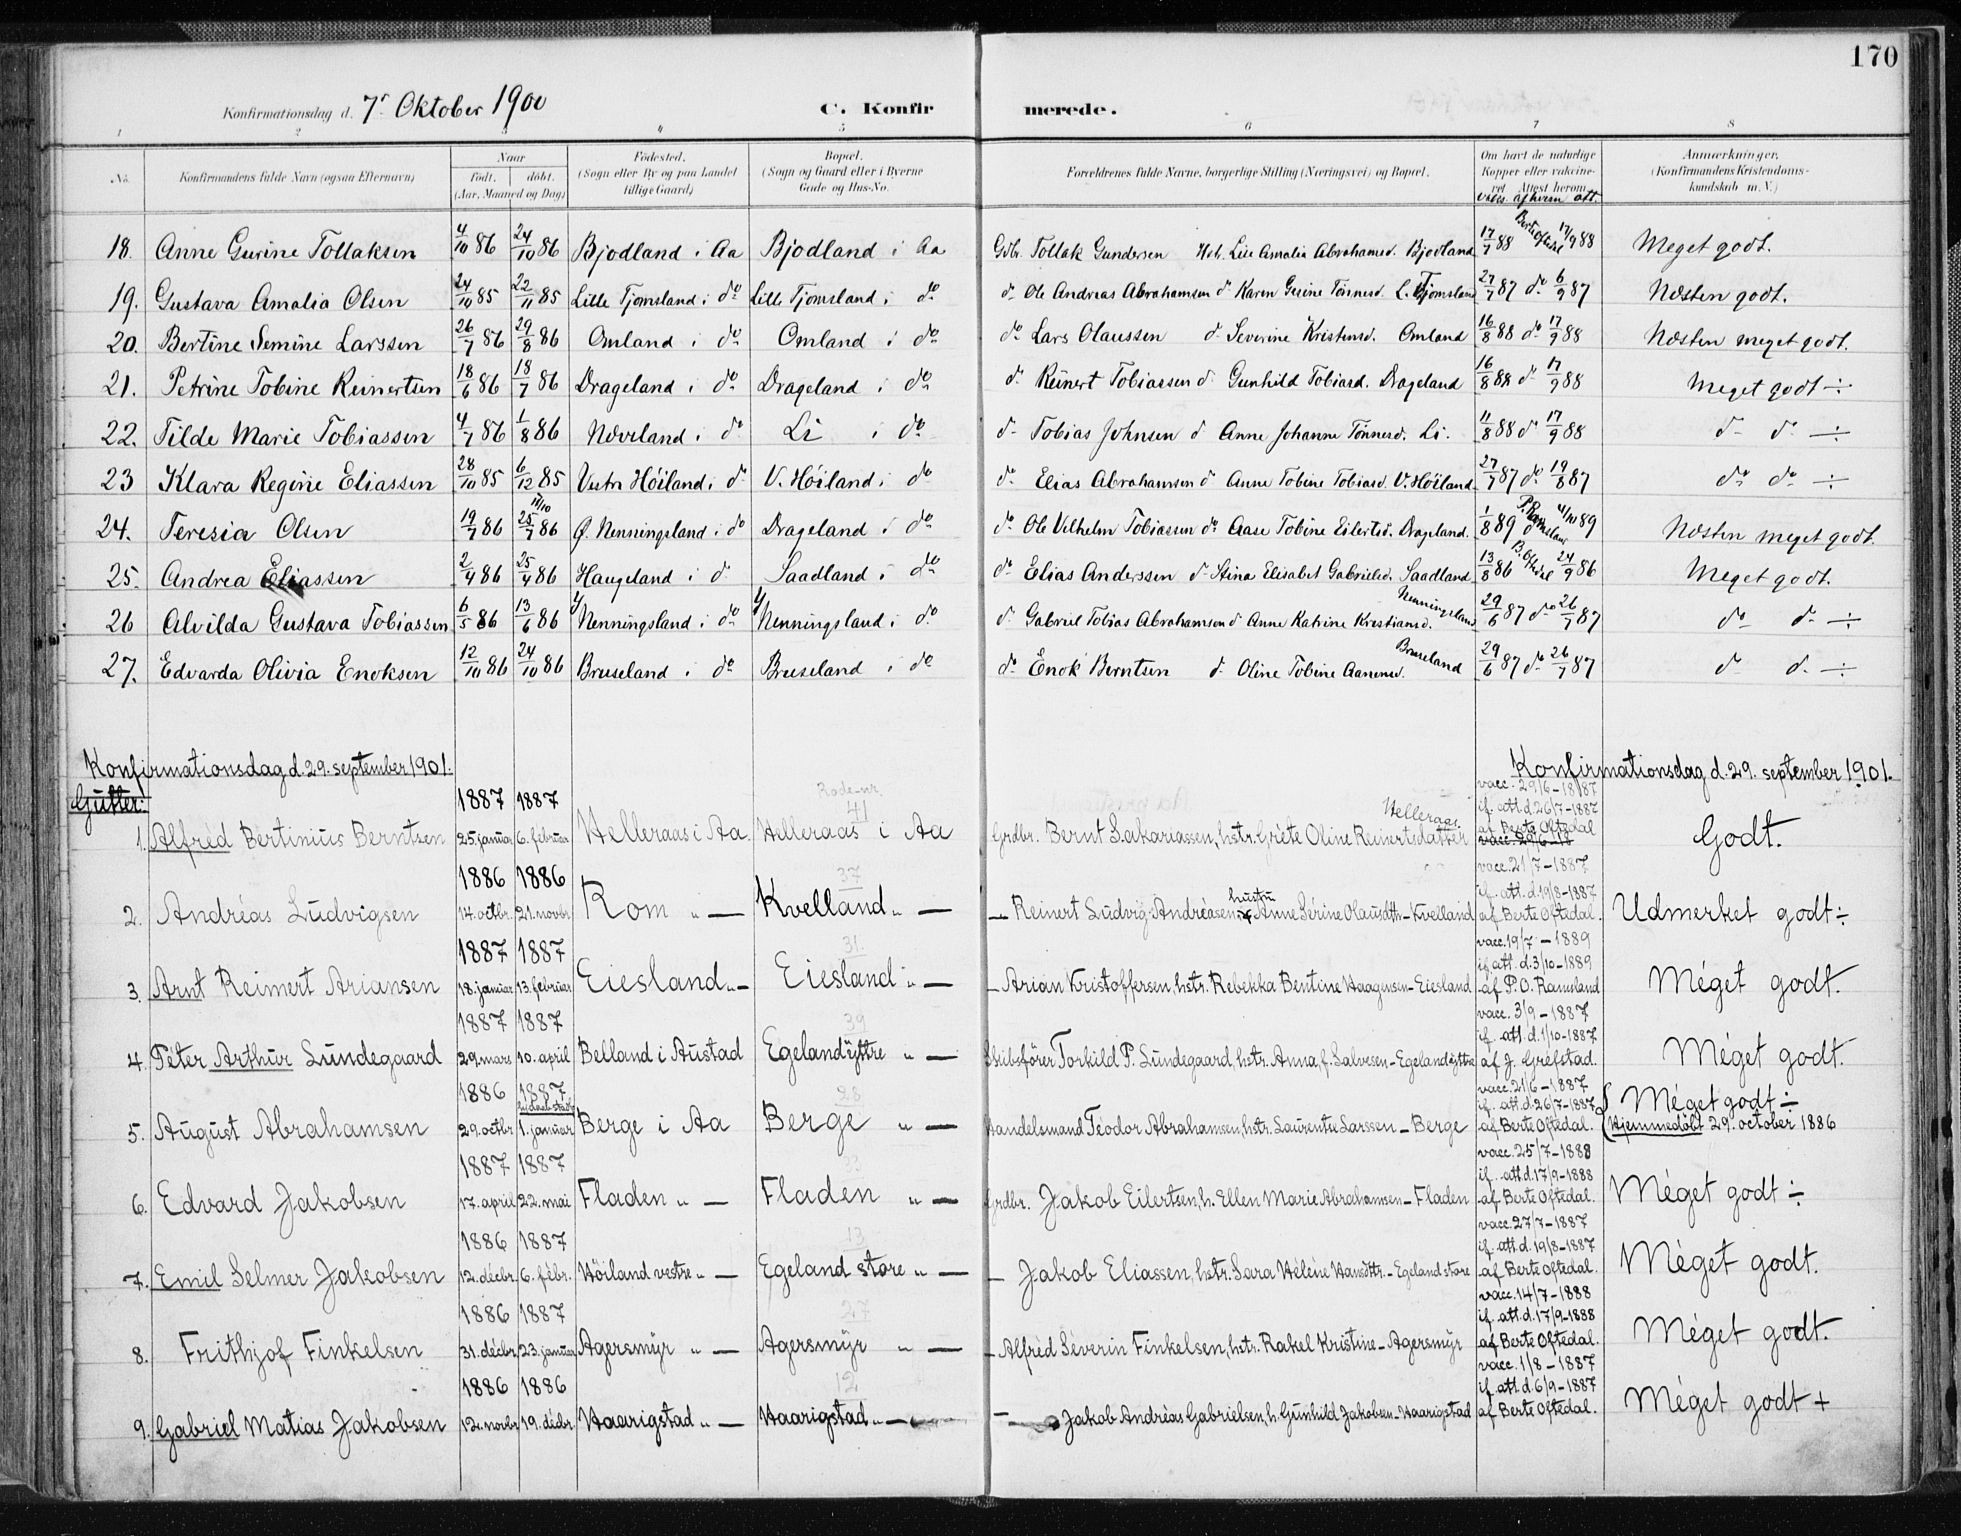 170
Konfirmationsdag d. 7' Oktober 1900 C. Konfirmerede.
1 2 3 4 5 6 7 8
No. Konfirmandens fulde Navn (ogsaa Efternavn) Naar födt. döbt. (Aar, Maaned og Dag) Födested. (Sogn eller By og paa Landet tillige Gaard) Bopæl. (Sogn og Gaard eller i Byerne Gade og Hus-No. Forældrenes fulde Navne, borgerlige Stilling (Næringsvei) og Bopæl. Om havt de naturlige Kopper eller vakcineret. Attest herom. Anmærkninger. (Konfirmandens Kristendomskundskab m. V.)
vacc. af hvem att.
18. Anne Gurine Tollaksen 4/10 86 24/10 86 Bjodland i Aa Bjodland i Aa Gdbr. Tollak Gundersen Hstr. Lise Amalia Abrahamsd. Bjodland 17/7 88 Berte Oftedal 17/9 88 Meget godt.
19. Gustava Amalia Olsen 24/10 85 22/11 85 Lille Tjomsland i do Lille Tjomsland i do do Ole Andreas Abrahamsen do Karen Gesine Tönnesd. L. Tjomsland 27/7 87 do 6/9 87 Næsten godt.
20. Bertine Semine Larssen 26/7 86 29/8 86 Omland i do Omland i do do Lars Olaussen do Severine Kristensd. Omland 16/8 88 do 17/9 88 Næsten meget godt.
21. Petrine Tobine Reinertsen 18/6 86 18/7 86 Drageland i do Drageland i do do Reinert Tobiassen do Gunhild Tobiasd. Drageland 16/8 88 do 17/9 88 Meget godt ÷
22. Tilde Marie Tobiassen 4/7 86 1/8 86 Növeland i do Li i do do Tobias Johnsen do Anne Johanne Tönnesd. Li. 11/8 88 do 17/9 88 do do ÷
23 Klara Regine Eliassen 28/10 85 6/12 85 Vestr Höiland i do V. Höiland i do do Elias Abrahamsen do Anne Tobine Tobiasd. V. Höiland 27/7 87 do 19/8 87 do do ÷
24. Teresia Olsen 19/7 86 25/7 86 Ö. Nenningsland i do Drageland i do do Ole Vilhelm Tobiassen do Aase Tobine Eilertsd. Drageland. 1/8 89 P. Ramsland 11/10 89 Næsten meget godt.
25. Andrea Eliassen 2/4 86 25/4 86 Haugeland i do Saadland i do do Elias Anderssen do Stina Elisabet Gabrielsd. Saadland 13/8 86 B. Oftedal 24/9 86 Meget godt.
26 Alvilda Gustava Tobiassen 6/5 86 13/6 86 Y Nenningsland i do Y Nenningsland i do do Gabriel Tobias Abrahamsen do Anne Katrine Kristiansd. Nenningsland 29/6 87 do 26/7 87 do do ÷
27. Edvarda Olivia Enoksen 12/10 86 24/10 86 Bruseland i do Bruseland i do do Enok Berntsen do Oline Tobine Aanensd. Bruseland 29/6 87 do 26/7 87 do do ÷
Konfirmationsdag d. 29. september 1901. Konfirmationsdag d. 29. september 1901.
Gutter:
1. Alfred Bertinius Berntsen 1887 25. januar 1887 6. februar Helleraas i Aa Rode-nr. 41 Helleraas i Aa Grdbr. Bernt Sakariassen, hstr. Gréte Oline Reinertsdatter Helleraas. vacc. 29/6-1887 if. att. d. 26/7-1887 af Berte Oftedal Godt.
2. Andréas Ludvigsen 1886 14. octbr. 1886 21. novbr. Rom " — 37 Kvelland " — — Reinert Ludvig Andréasen, hustru Anne Sérine Olausdttr.-Kvelland vacc. 21/7-1887 if. att. d. 19/8-1887 af Berte Oftedal. Udmerket godt ÷
3. Arnt Reimert Ariansen 1887 18. januar 1887 13. februar Eiesland " — 31. Eiesland " — — Arian Kristoffersen, hstr. Rebekka Bentine Haagensen-Eiesland vacc. 19/7-1889 if. att. d. 3/10-1889 af P. O. Ramsland Méget godt.
4. Péter Arthur Lundegaard 1887 29. mars 1887 10. april Belland i Austad 39 Egeland ÿttre " — Skibsförer Torkild P. Lundegaard, hstr. Anna, f. Salvesen-Egeland ÿttre vacc. 3/9-1887 if. att. d. 1/10-1887 af J. Gréfstad. Méget godt.
5. August Abrahamsen 1886 29. octbr 1887 1. januar Berge i Aa 28 Berge " — Handelsmand Téodor Abrahamsen, hstr. Laurentze Larssen - Berge vacc. 21/6-1887 if. att. d. 26/7-1887 af Berte Oftedal. Méget godt ÷ Hjemmedöbt 29. october 1886
6. Edvard Jakobsen 1887 17. april 1887 22. mai Fladen " — 33 Fladen " — Grdbr. Jakob Eilertsen, h. Ellen Marie Abrahamsen - Fladen vacc. 25/7-1888 if. att. d. 17/9-1888 af Berte Oftedal. Méget godt ÷
7. Emil Selmer Jakobsen 1886 12. décbr. 1887 6. fébr. Höiland vestre " — 13 Egeland store " — — Jakob Eliassen, hstr. Sara Héléne Hansdttr. - Egeland store vacc. 27/7-1887 if. att. d. 19/8-1887 af Berte Oftedal. Méget godt.
8. Frithjof Finkelsen 1886 31. décbr. 1887 23. januar Agersmÿr " — 27 Agersmÿr " — — Alfréd Séverin Finkelsen, hstr. Rakel Kristine - Agersmÿr vacc. 14/7-1888 if. att. d. 17/9-1888 af Berte Oftedal. Méget godt.
9. Gabriel Matias Jakobsen 1886 12. novbr 1886 19. décbr. Haarigstad " — 12 Haarigstad " — — Jakob Andréas Gabrielsen, h. Gunhild Jakobsen - Haarigstad vacc. 1/8-1887 if. att. d. 6/9-1887 af Berte Oftedal. Méget godt +